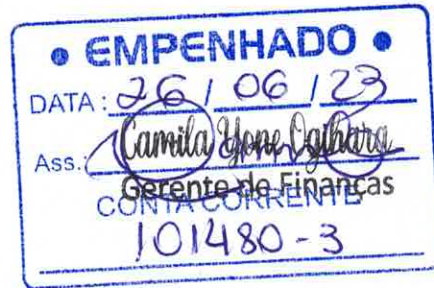 • EMPENHADO •
DATA: 26 / 06 / 23
Ass.: Camila Yone Ogihara
Gerente de Finanças
CONTA CORRENTE
101480-3